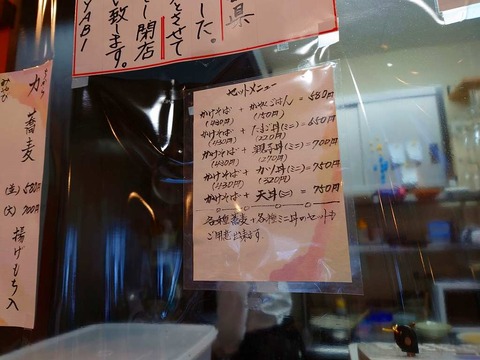 県
した。
をさせて
し 開店
い致します。
YABI
セットメニュー
かけそば + かやくごはん = 580円
(430円) (150円)
かけそば + たまご丼(ミニ) = 650円
(430円) (220円)
かけそば + 親子丼(ミニ) = 700円
(430円) (270円)
かけそば + カツ丼(ミニ) = 750円
(430円) (320円)
かけそば + 天丼(ミニ) = 750円
各種蕎麦 + 各種ミニ丼のセットも
ご用意出来ます
力
蕎麦
(並) 580円
(大) 700円
揚げもち入